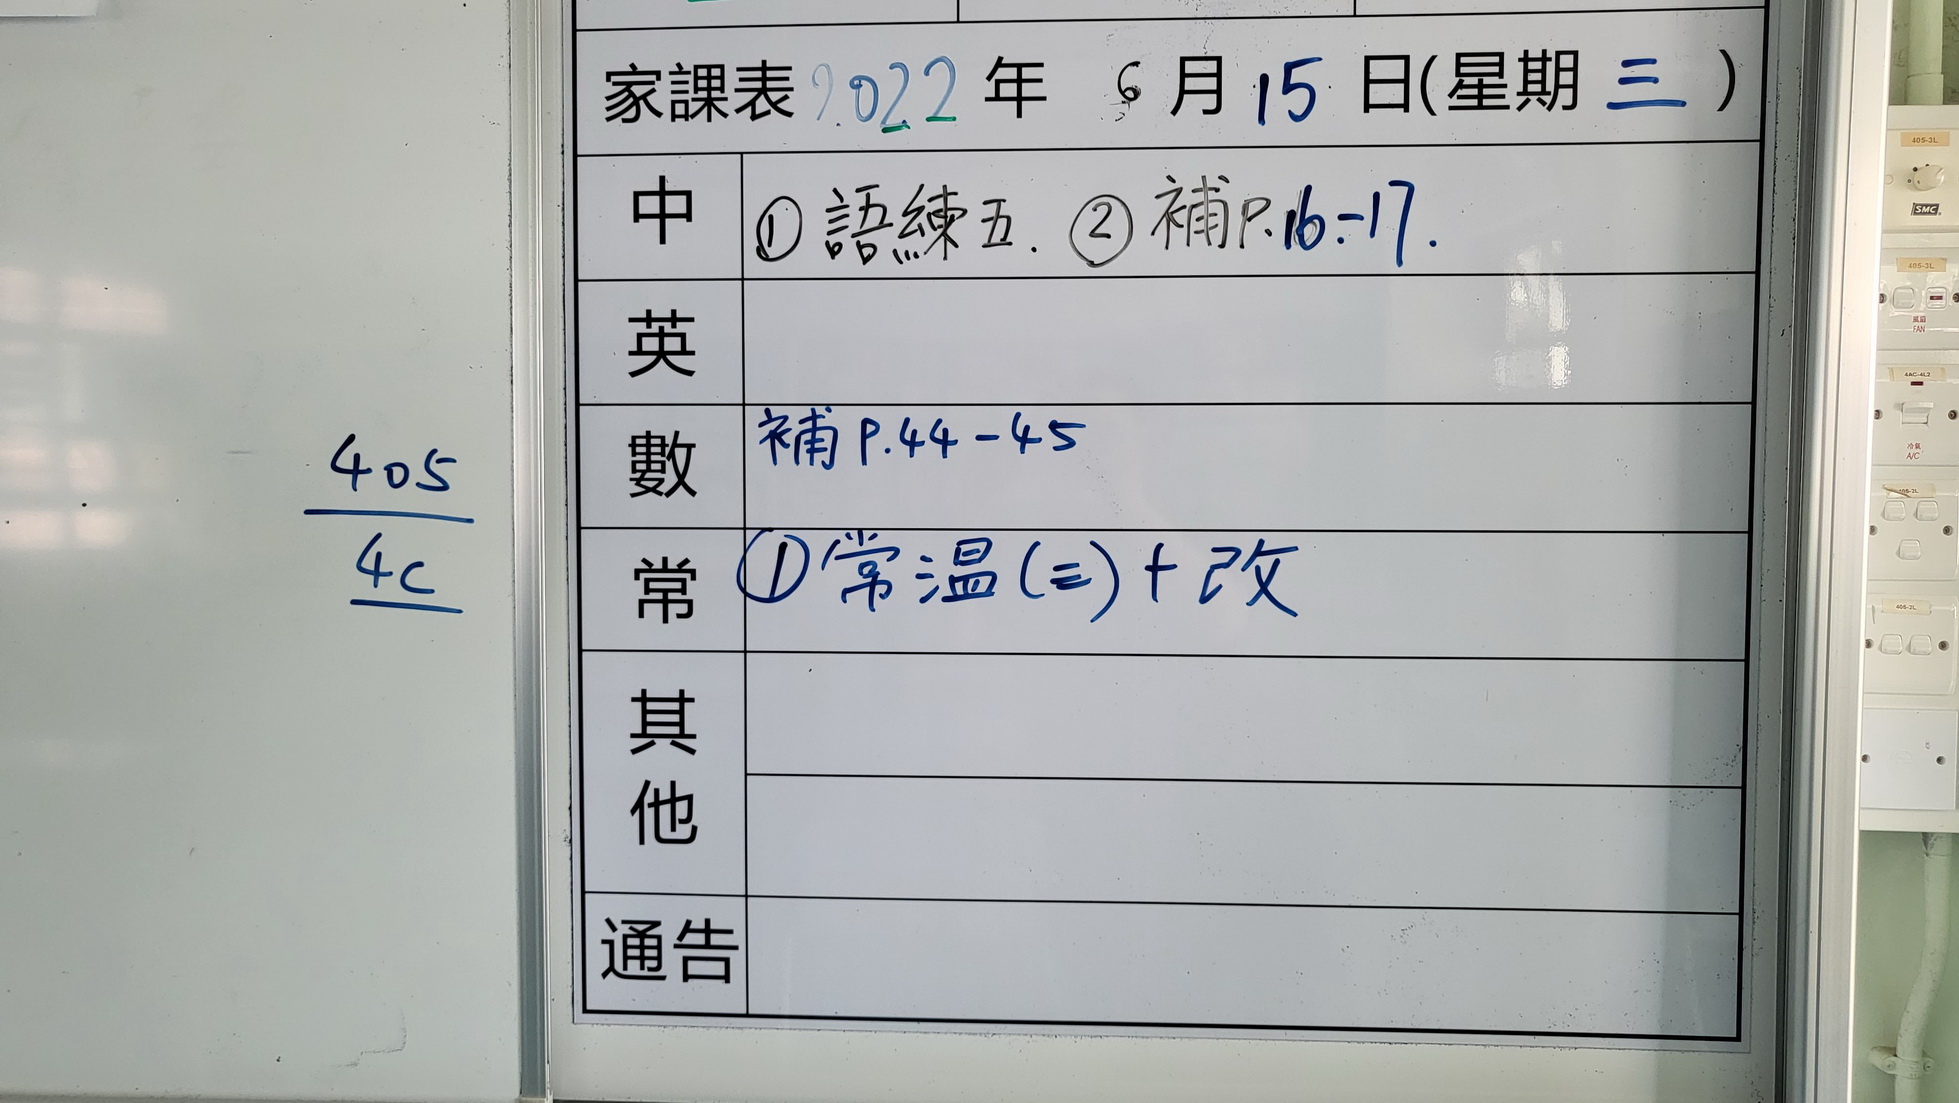 家課表 2022 年 6 月 15 日(星期 三 )
中 ① 語練五. ② 補P.16-17.
英
數 補 P.44-45
常 ①常温(二)+改
其他
通告
405
4C
405-3L
SMC
405-3L
風扇
FAN
4AC-4L2
冷氣
A/C
405-2L
405-2L